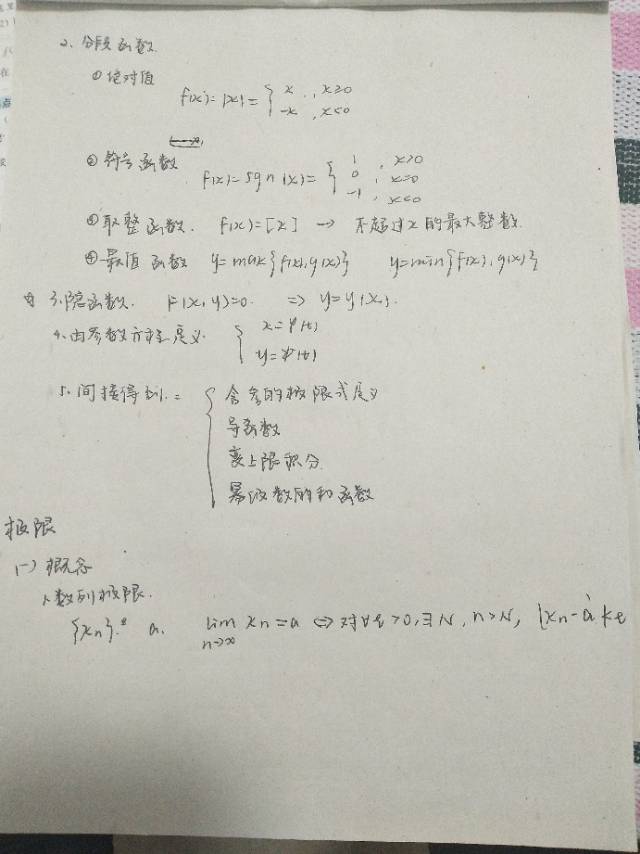 2、分段函数
①绝对值
f(x)=|x|={ x , x≥0
-x , x<0
②符号函数
f(x)=sgn(x)={ 1 , x>0
0 , x=0
-1 , x<0
④取整函数. f(x)=[x] → 不超过x的最大整数.
④最值函数 y=max{f(x),g(x)} y=min{f(x),g(x)}
3.隐函数. F(x,y)=0. => y=y(x).
4.由参数方程定义. { x=φ(t)
y=ψ(t)
5.间接得到.= { 含参的极限式定义
导函数
变上限积分.
幂级数的和函数
极限
(一)概念
1.数列极限.
{xn}. a. lim xn=a ⇔ 对∀ε>0,∃N,n>N, |xn-a|<ε
n→∞